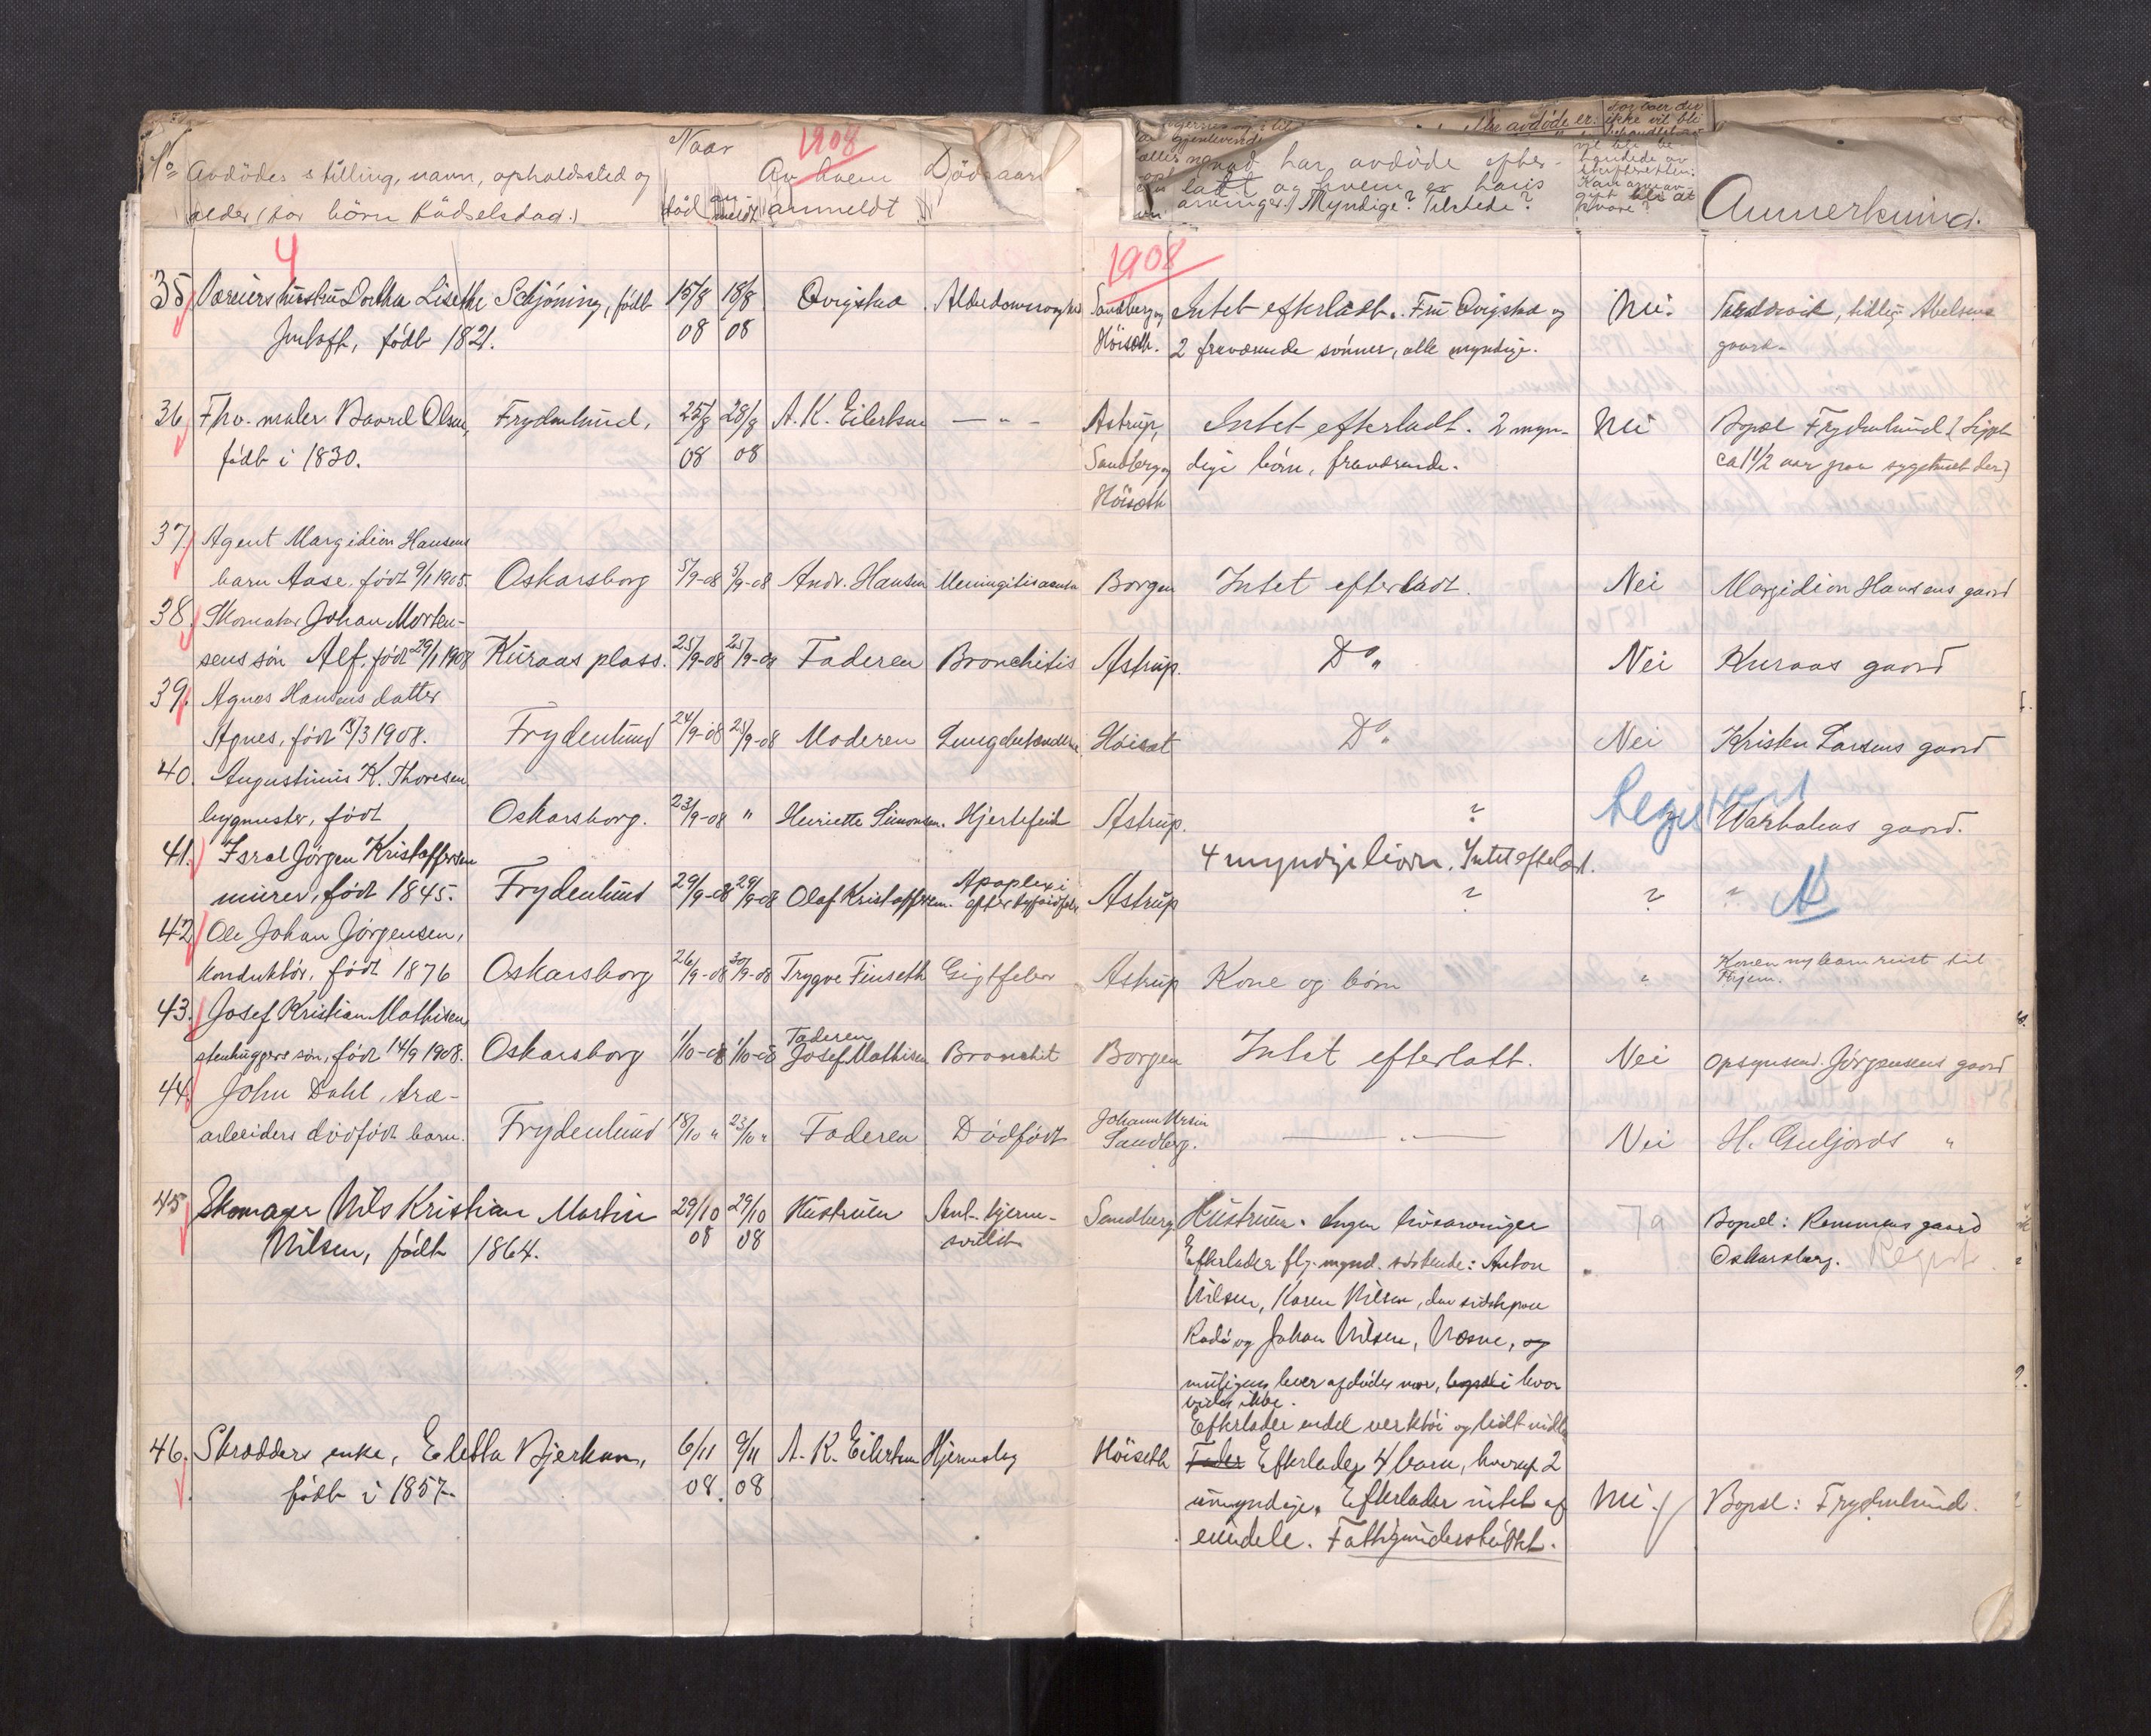 No Avdödes stilling, navn, opholdssted og
alder (for börn födselsdag.)
Naar
död an meldt
1908
Av hvem
anmeldt
Dödsaars
har avdöde efter-
latt og hvem er hans
arvinger? Myndige? Tilstede?
Anmerkning.
4
1908
35 hustru Dorthea Lisethe Schjöning, födt 15/8 18/8 Qvigstad Alderdomssvaghed Sandberg og Intet efterladt. Fru Qvigstad og Nei. tidlig. Abelsens
födt 1821. 08 08 Höiseth. 2 fraværende sönner, alle myndige. gaard.
36 Fhv. maler Baard Olsen, Frydenlund, 25/8 28/8 A. K. Eilertsen — " — Astrup, Intet efterladt. 2 myn- Nei Bopæl Frydenlund (Ligget
födt i 1830. 08 08 Sandberg og dige börn, fraværende. ca 1 1/2 aar paa sygehuset der)
Höiseth
37. Agent Margidion Hansens
barn Aase, födt 9/1 1905. Oskarsborg 5/9-08 5/9-08 Andr. Hansen Meningitis Borgen Intet efterladt. Nei Margidion Hansens gaard
38. Skomaker Johan Morten-
sens sön Alf, födt 29/1 1908 Kuraas plass. 25/9-08 25/9-08 Faderen Bronchitis Astrup. Do " Nei Kuraas gaard
39. Agnes Hansens datter
Agnes, födt 13/3 1908. Frydenlund 24/9-08 25/9-08 Moderen Lungebetændelse Höiset Do " Nei Kristen Larsens gaard
40. Augustinus K. Thoresen
bygmester, födt Oskarsborg. 23/9-08 " Henriette Simonsen. Hjertefeil Astrup. ? Registrert Warholms gaard.
41. Isral Jörgen Kristoffersen 4 myndige börn. Intet efterladt.
murer, födt 1845. Frydenlund 29/9-08 29/9-08 Olaf Kristoffersen. Apoplexi efter tyfoidfeber Astrup ? ? "
42 Ole Johan Jörgensen,
konduktör, födt 1876 Oskarsborg 26/9-08 30/9-08 Trygve Finseth Gigtfeber Astrup Kone og börn " Konen og barn reist til
Hjem.
43. Josef Kristian Mathisens
stenhuggers sön, födt 14/9 1908. Oskarsborg 1/10-08 1/10-08 Faderen Josef Mathisen Bronchit Borgen Intet efterlatt. Nei Opsynsm. Jörgensens gaard
44. John Dahl, træ-
arbeiders dödfödt barn. Frydenlund 18/10 " 23/10 " Faderen Dödfödt Johann Ursin Sandberg. — " — Nei H. Guljords "
45 Skomager Nils Kristian Martin 29/10 29/10 Hustruen Ant. hjerne- Sandberg Hustruen. Ingen livsarvinger Ja Bopæl: Remmens gaard
Nilsen, födt 1864. 08 08 svulst Efterlader flg. mynd. söskende: Anton Oskarsborg. Regist.
Nilsen, Karen Nilsen, den sidste paa
Rödö og Johan Nilsen, Næsne, og
muligens lever afdödes mor, hvor
vides ikke.
Efterlader endel verktöi og lidt
46. Skrædders enke, Eletta Bjerkan, 6/11 9/11 A. K. Eilertsen Hjerneslag Höiseth Efterlader 4 barn, hvoraf 2
födt i 1857. 08. 08 umyndige. Efterlader intet af Nei. Bopæl: Frydenlund.
eiendele. Fattigunderstöttet.